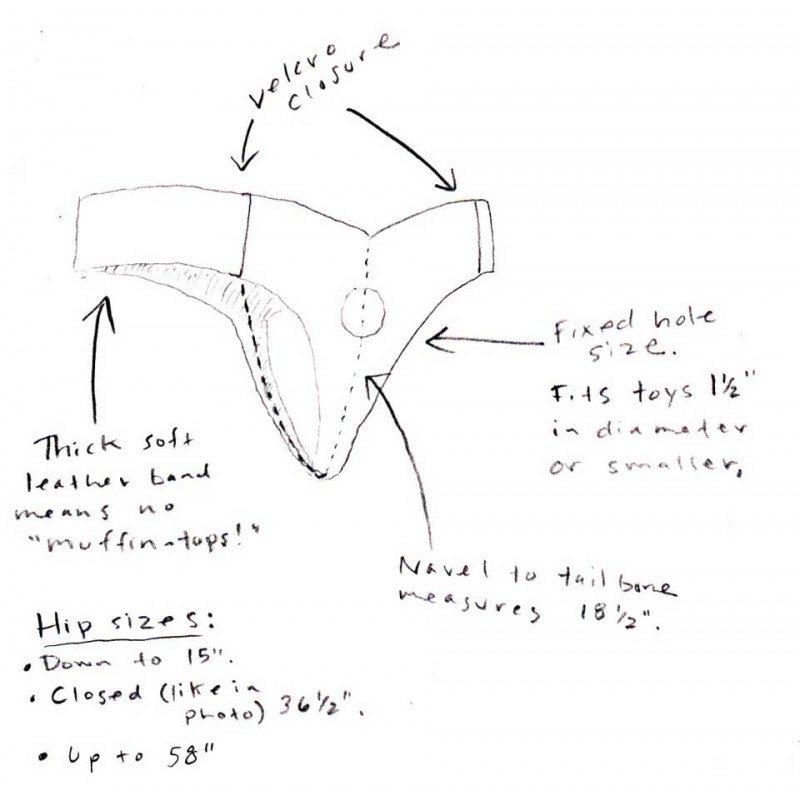 velcro
closure
Fixed hole
size.
Fits toys 1½"
in diameter
or smaller.
Thick soft
leather band
means no
"muffin-tops!"
Navel to tailbone
measures 18½".
Hip sizes:
• Down to 15".
• Closed (like in
photo) 36½".
• Up to 58"